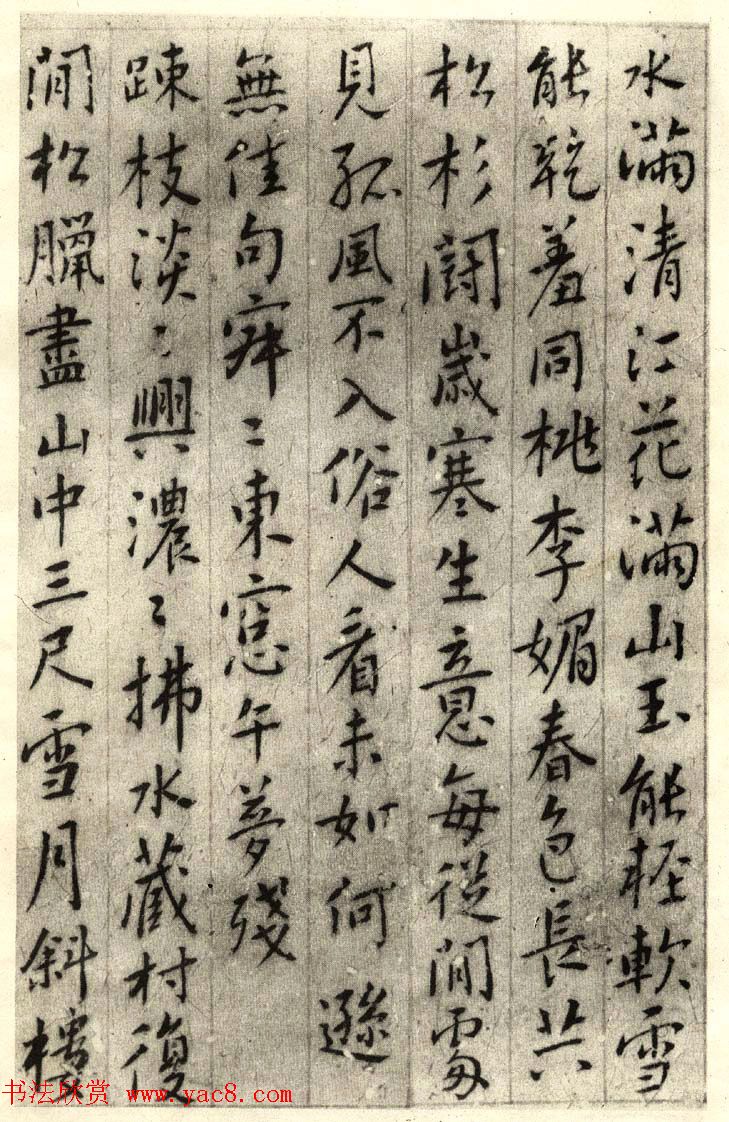 水滿清江花滿山玉能輕軟雪
能乾羞同桃李媚春色長共
松杉鬪歲寒生意每從閒處
見孤風不入俗人看未如何遜
無佳句寐〻東窓午夢殘
踈枝淡〻興濃〻拂水藏村復
閒松臘盡山中三尺雪月斜樓
书法欣赏 www.yac8.com